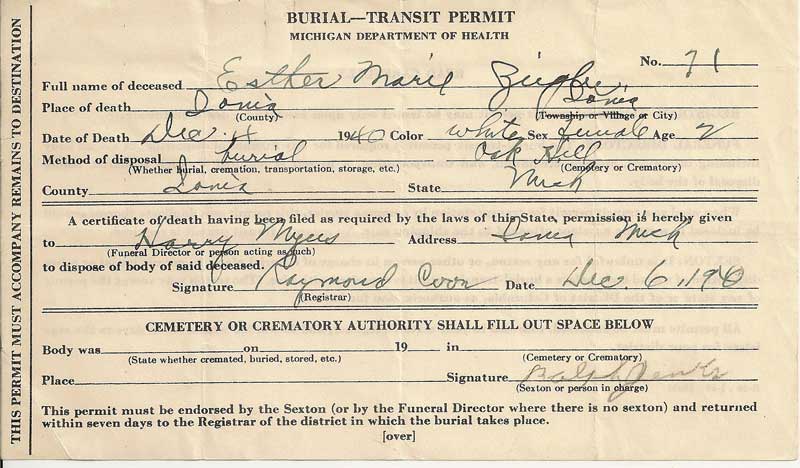 THIS PERMIT MUST ACCOMPANY REMAINS TO DESTINATION
BURIAL—TRANSIT PERMIT
MICHIGAN DEPARTMENT OF HEALTH
No. 71
Full name of deceased Esther Marie
Place of death Ionia Ionia
(County) (Township or Village or City)
Date of Death Dec. 4 1940 Color White Sex female Age 2
Method of disposal burial Oak Hill
(Whether burial, cremation, transportation, storage, etc.) (Cemetery or Crematory)
County Ionia State Mich
A certificate of death having been filed as required by the laws of this State, permission is hereby given
to Harry Myers Address Ionia Mich
(Funeral Director or person acting as such)
to dispose of body of said deceased.
Signature Raymond Coon Date Dec. 6, 1940
(Registrar)
CEMETERY OR CREMATORY AUTHORITY SHALL FILL OUT SPACE BELOW
Body was on 19 in
(State whether cremated, buried, stored, etc.) (Cemetery or Crematory)
Place Signature Ralph Jenks
(Sexton or person in charge)
This permit must be endorsed by the Sexton (or by the Funeral Director where there is no sexton) and returned
within seven days to the Registrar of the district in which the burial takes place.
[over]